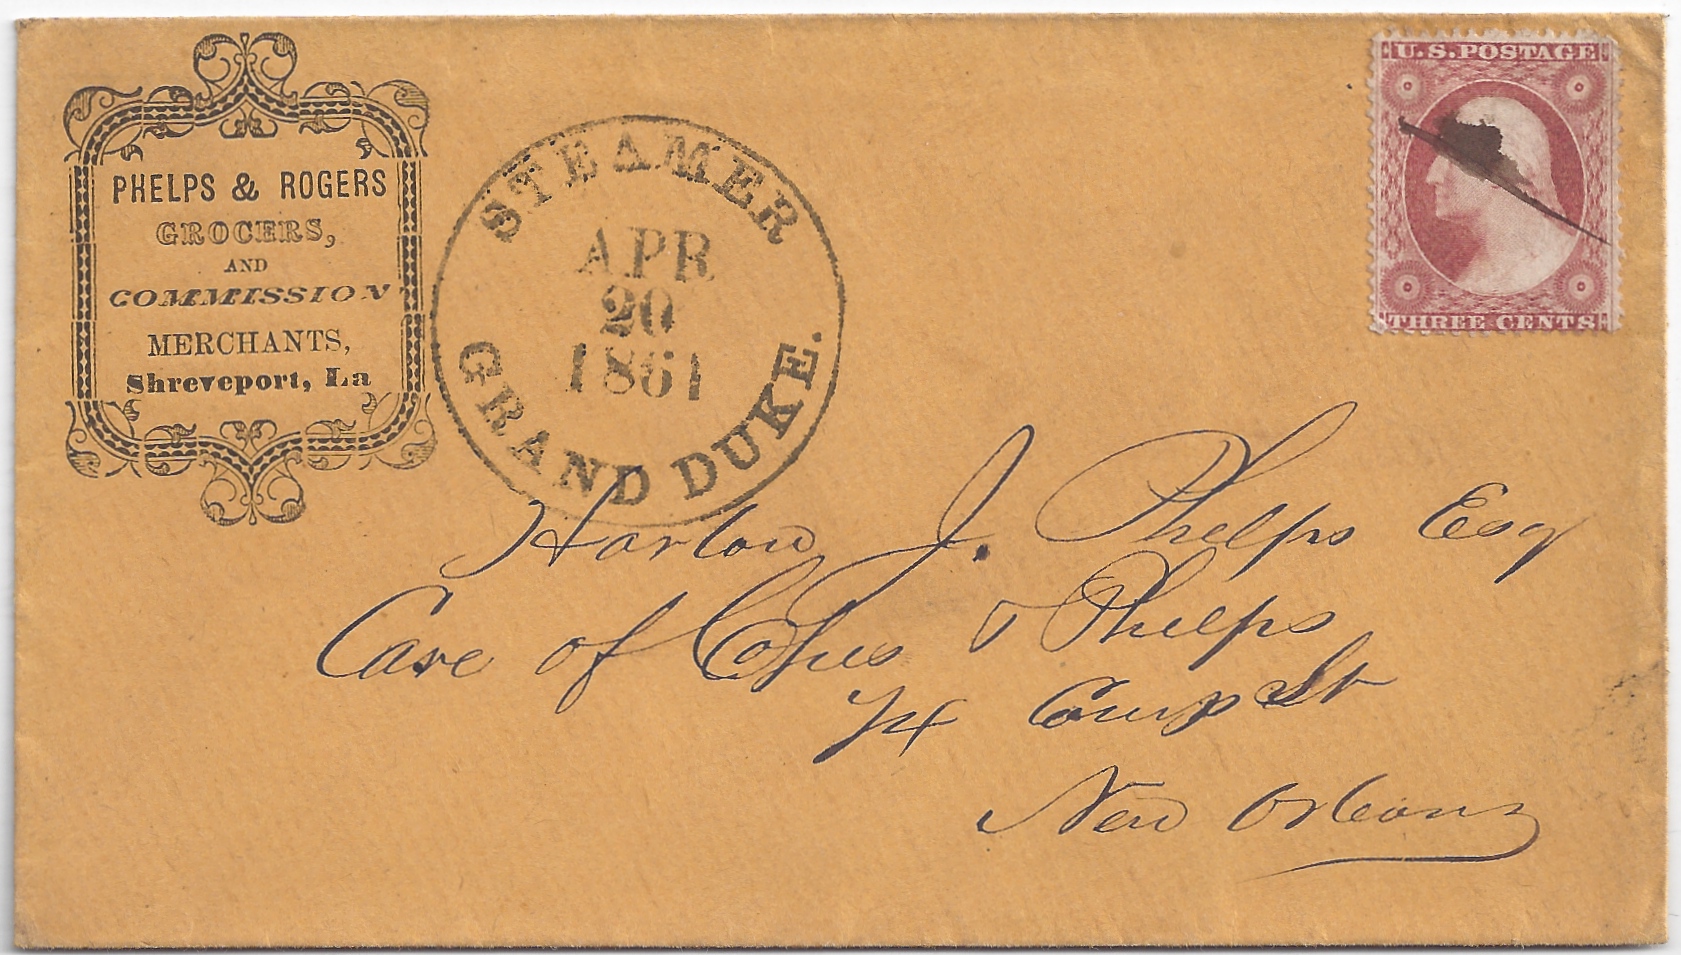 PHELPS & ROGERS
GROCERS,
AND
COMMISSION
MERCHANTS,
Shreveport, La
STEAMER
APR
20
1861
GRAND DUKE.
U.S. POSTAGE
THREE CENTS
Harlow J. Phelps Esq
Care of & Phelps
Camp St
New Orleans